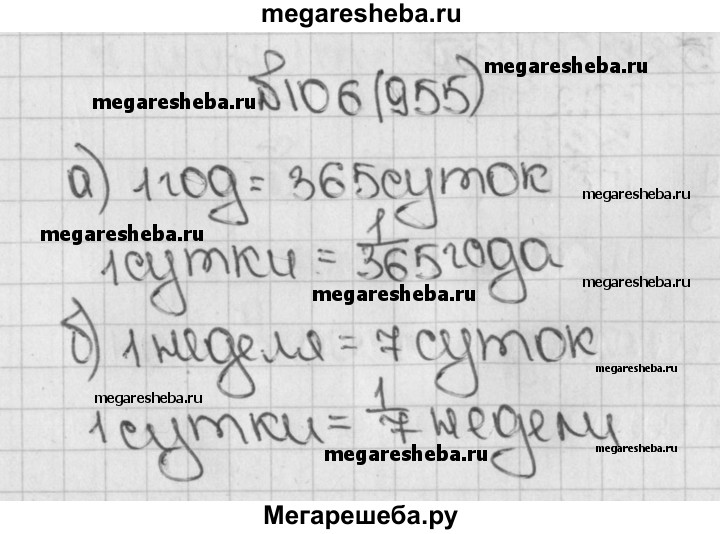 megaresheba.ru
megaresheba.ru
megaresheba.ru
№106(955)
а) 1 год = 365 суток
megaresheba.ru
megaresheba.ru
1 сутки = 1/365 года
megaresheba.ru
megaresheba.ru
б) 1 неделя = 7 суток
megaresheba.ru
megaresheba.ru
1 сутки = 1/7 недели
megaresheba.ru
megaresheba.ru
Мегарешеба.ру